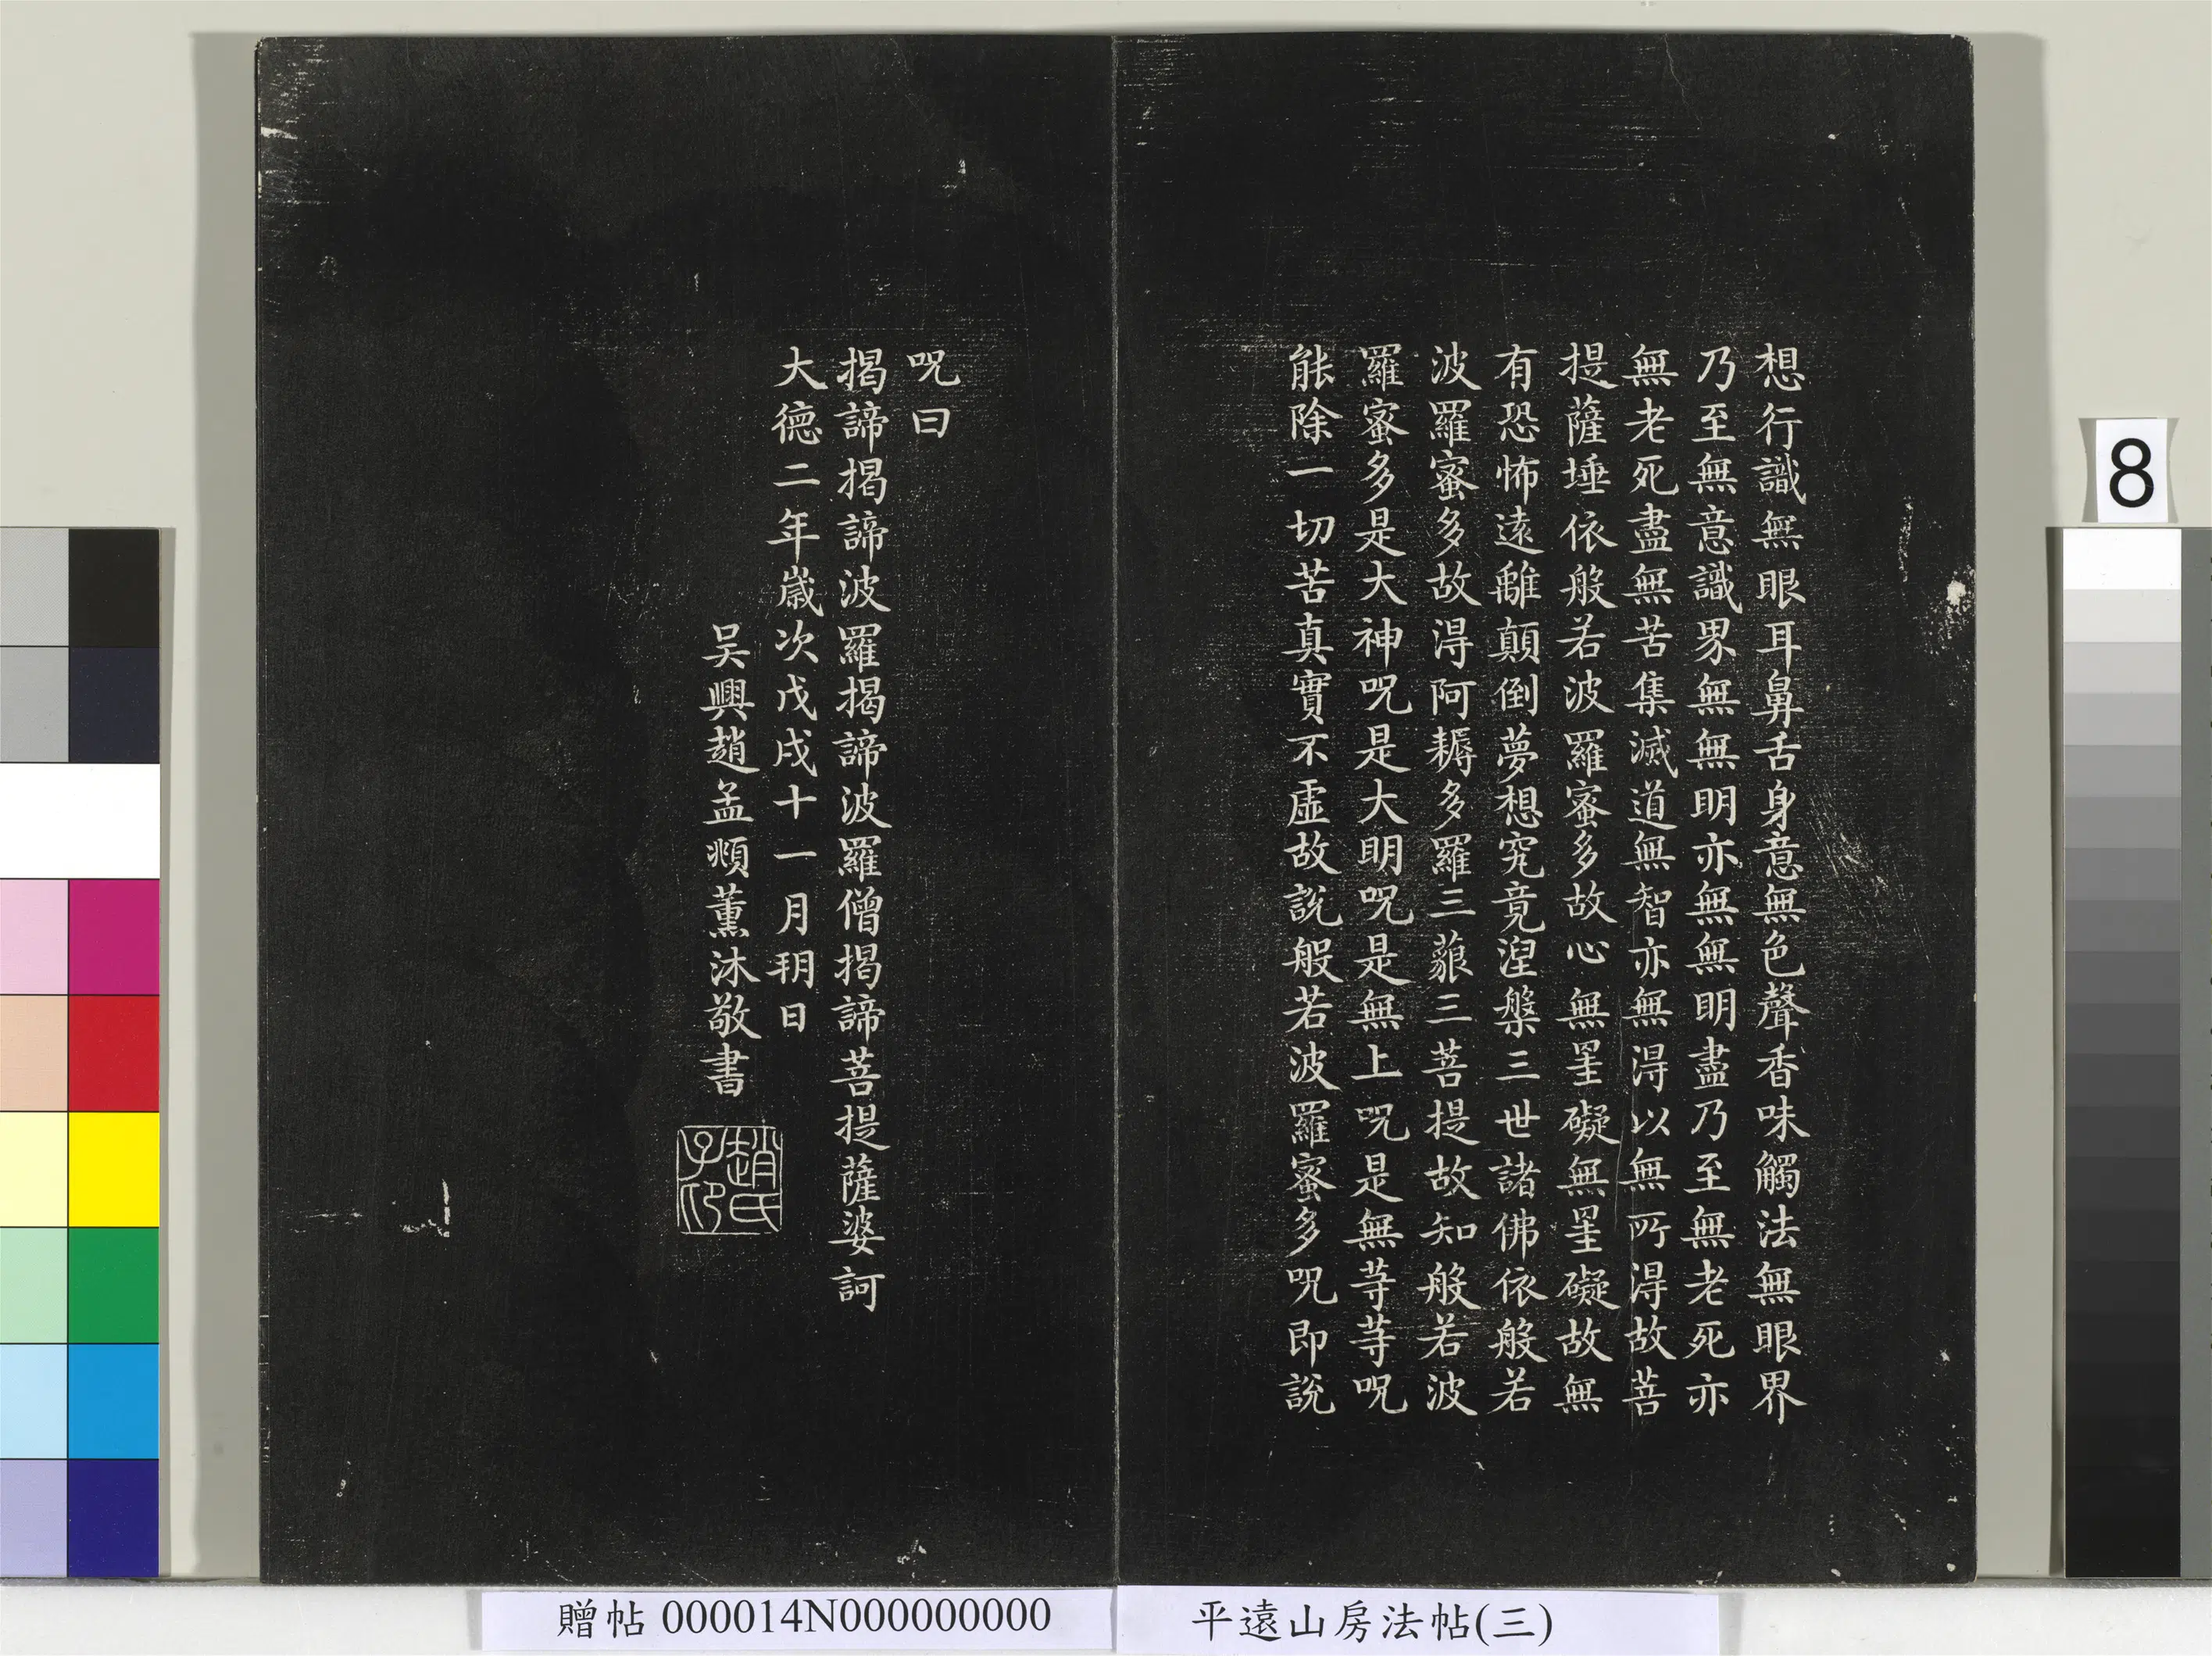 想行識無眼耳鼻舌身意無色聲香味觸法無眼界
乃至無意識界無無明亦無無明盡乃至無老死亦
無老死盡無苦集滅道無智亦無得以無所得故菩
提薩埵依般若波羅蜜多故心無罣礙無罣礙故無
有恐怖遠離顛倒夢想究竟涅槃三世諸佛依般若
波羅蜜多故得阿耨多羅三藐三菩提故知般若波
羅蜜多是大神呪是大明呪是無上呪是無等等呪
能除一切苦真實不虛故說般若波羅蜜多呪即說
呪曰
揭諦揭諦波羅揭諦波羅僧揭諦菩提薩婆訶
大德二年歲次戊戌十一月玥日
吴興趙孟頫薰沐敬書
趙氏子印
8
贈帖 000014N000000000
平遠山房法帖(三)